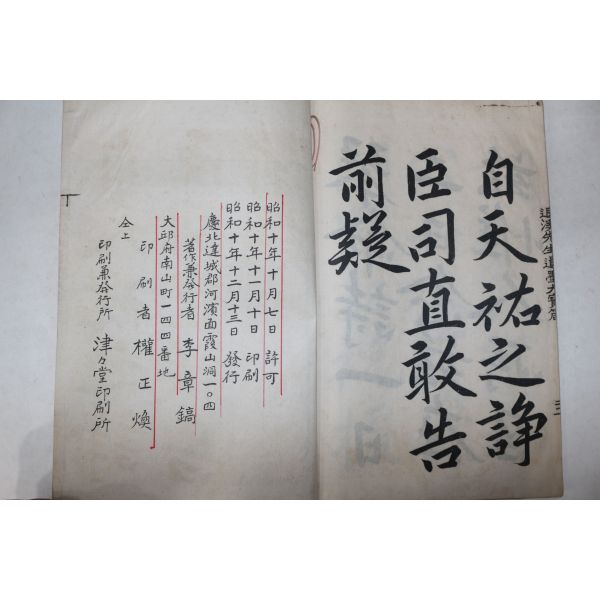 自天祐之諍
臣司直敢告
前疑
退溪先生遺墨大寶箴
昭和十年十月七日 許可
昭和十年十一月十日 印刷
昭和十年十二月十三日 發行
慶北達城郡河濱面霞山洞一〇四
著作兼發行者 李章鎬
大邱府南山町一四四番地
印刷者 權正煥
仝上
印刷兼發行所 津々堂印刷所